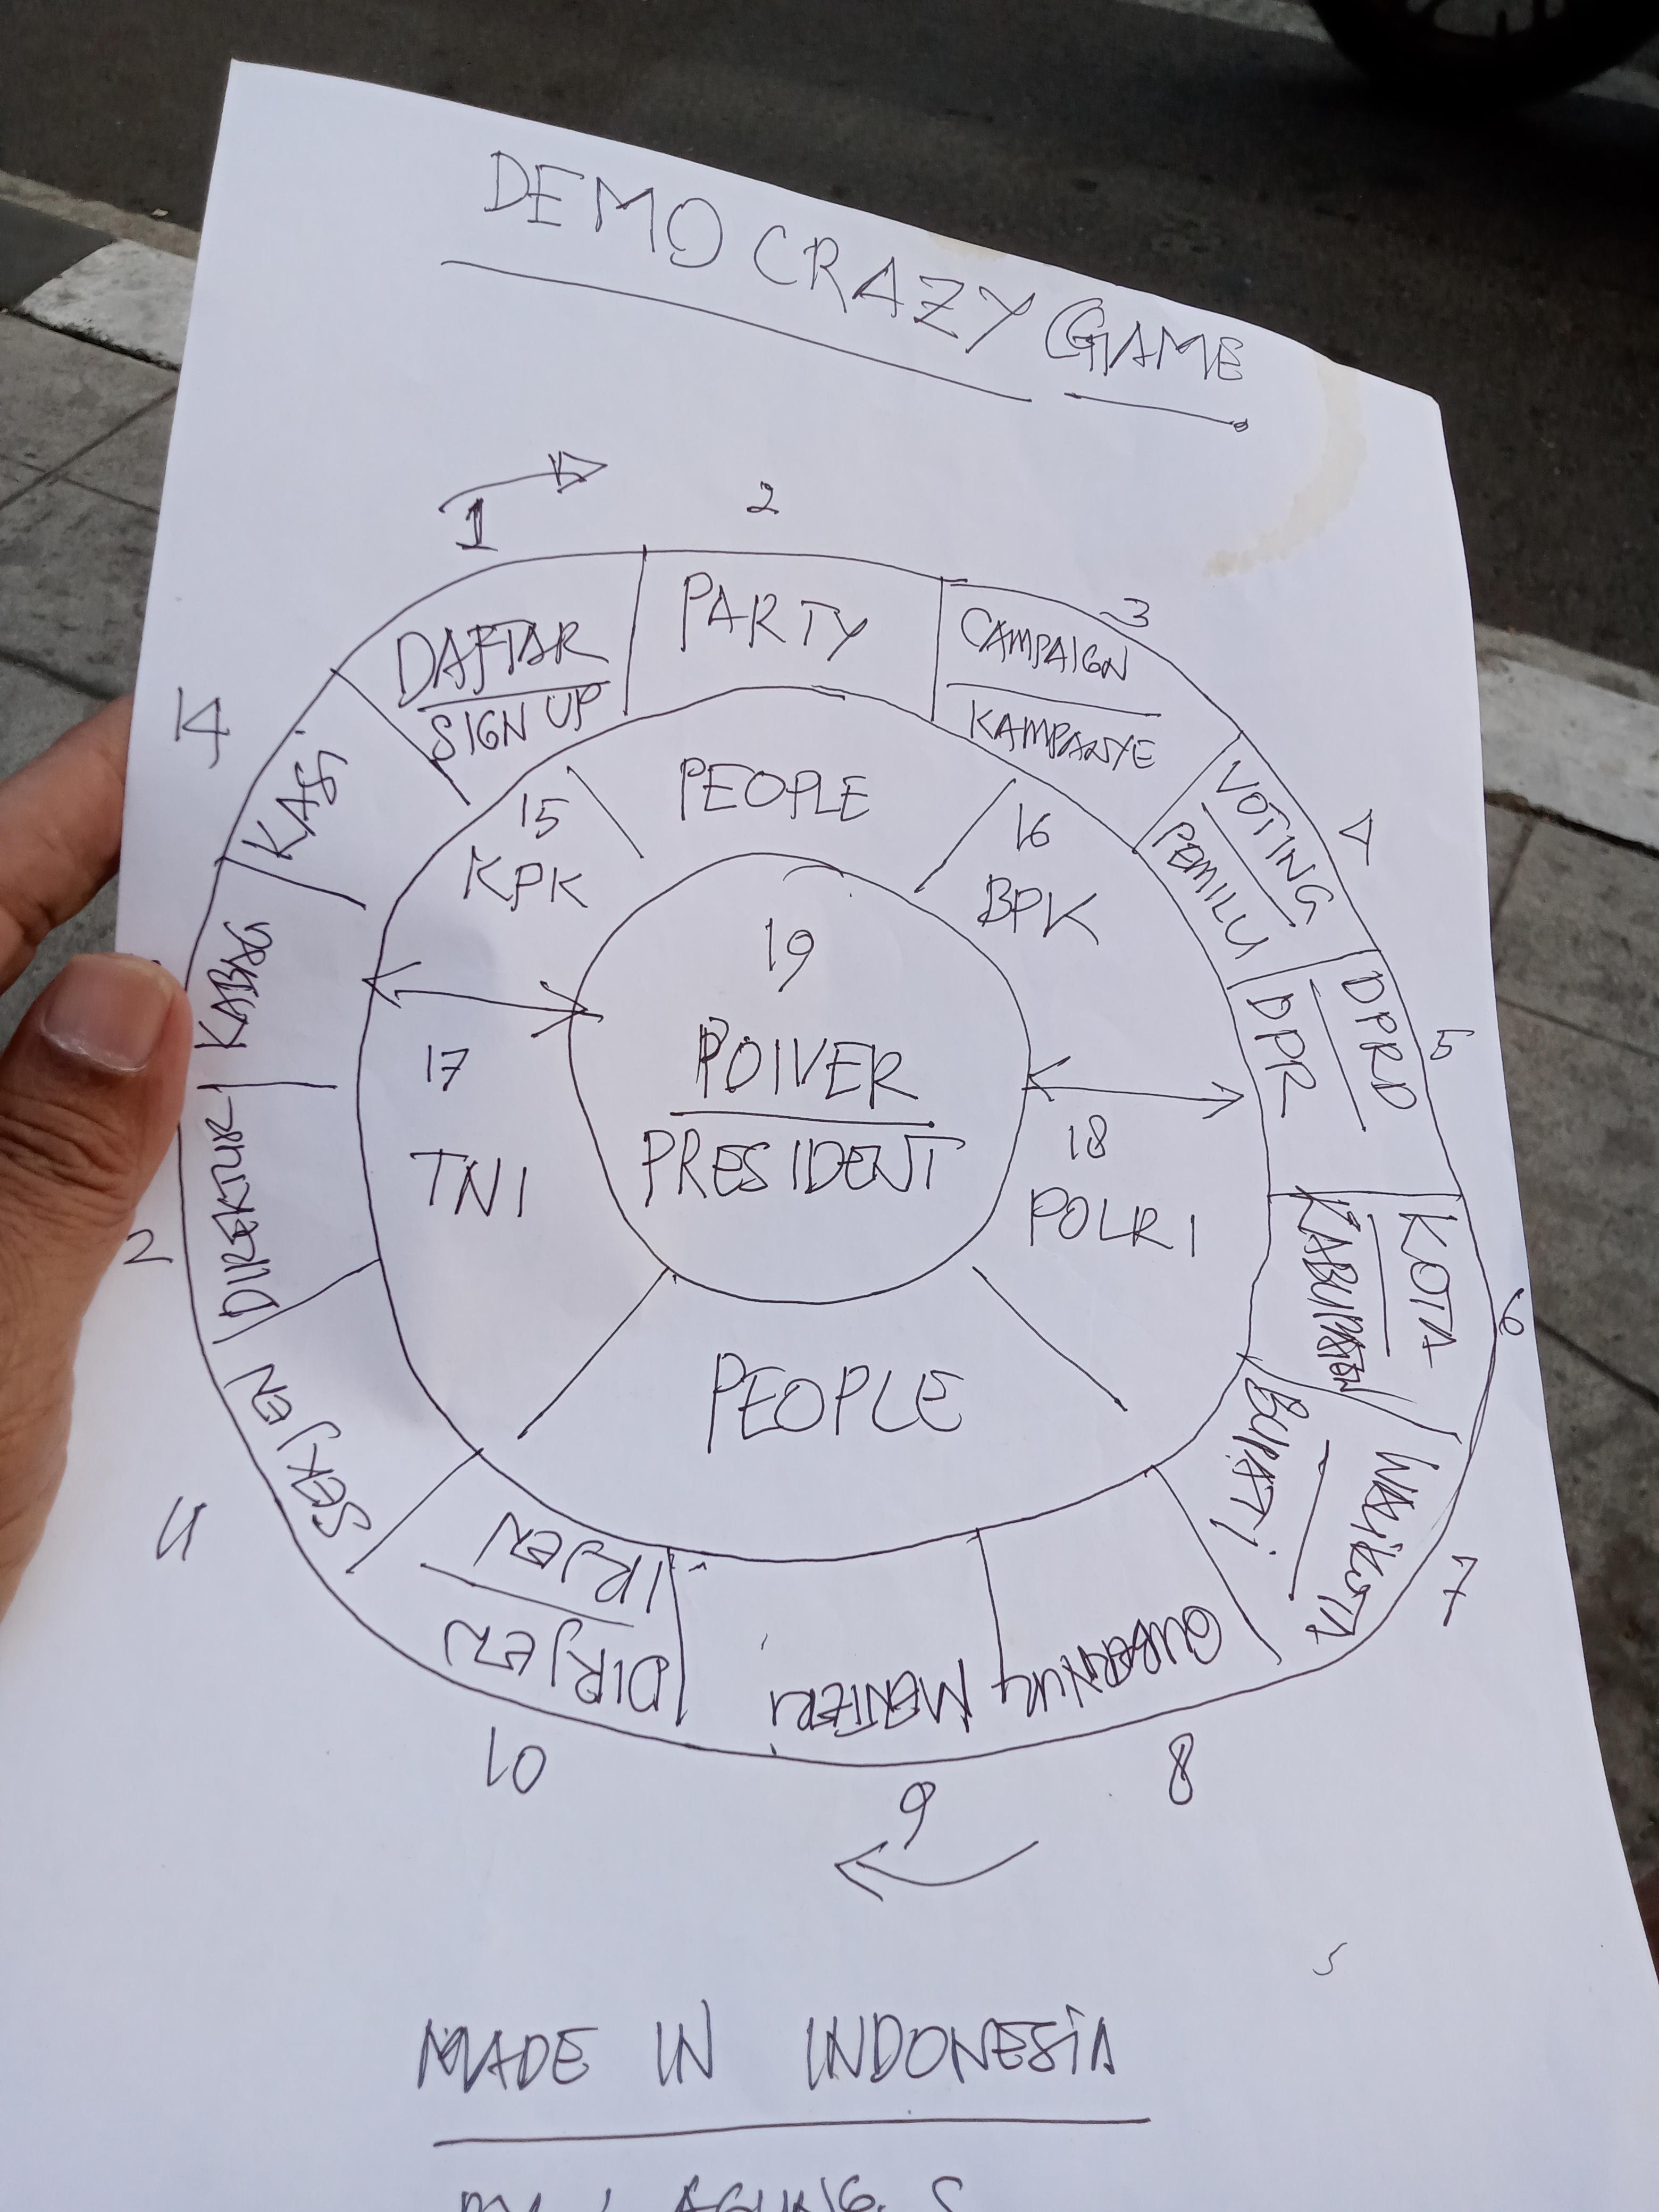 DEMO CRAZY GAME
1
2
3
DAFTAR
SIGN UP
PARTY
CAMPAIGN
KAMPANYE
4
VOTING
PEMILU
5
DPRD
DPR
6
KOTA
KABUPATEN
7
WALIKOTA
BUPATI
8
GUBERNUR
9
MENTERI
10
DIRJEN
IRJEN
11
SEKJEN
12
DIREKTUR
KABAG
14
KASI
15
KPK
PEOPLE
16
BPK
17
TNI
18
POLRI
PEOPLE
19
POWER
PRESIDENT
MADE IN INDONESIA
AGUNG. S